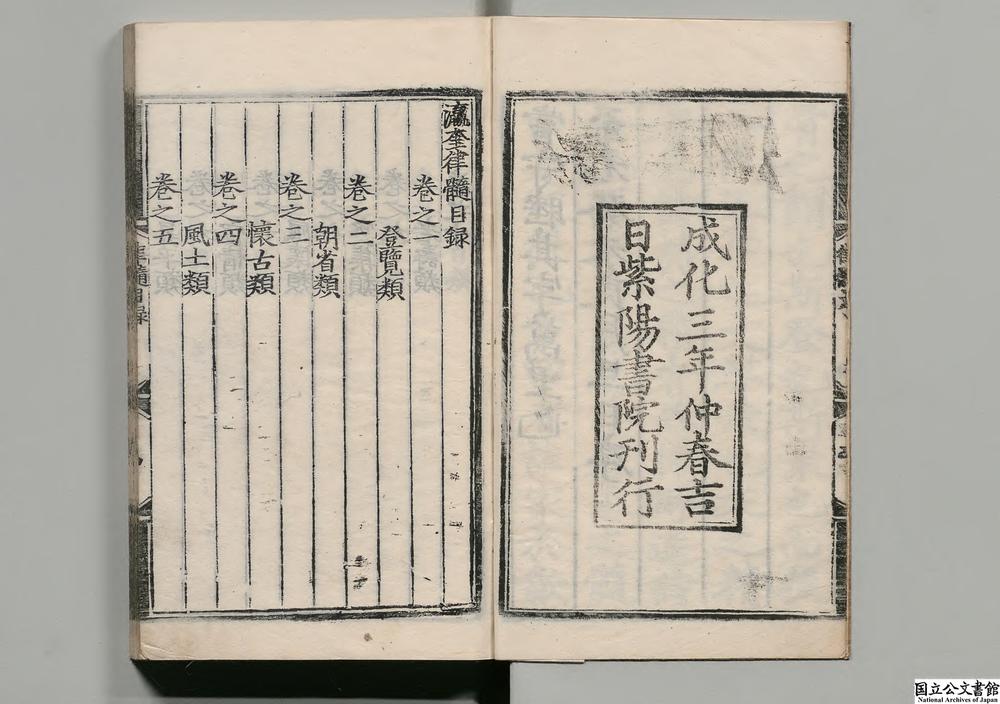 成化三年仲春吉
日紫陽書院刊行
瀛奎律髓目録
卷之一
登覽類
卷之二
朝省類
卷之三
懷古類
卷之四
風土類
卷之五
国立公文書館
National Archives of Japan